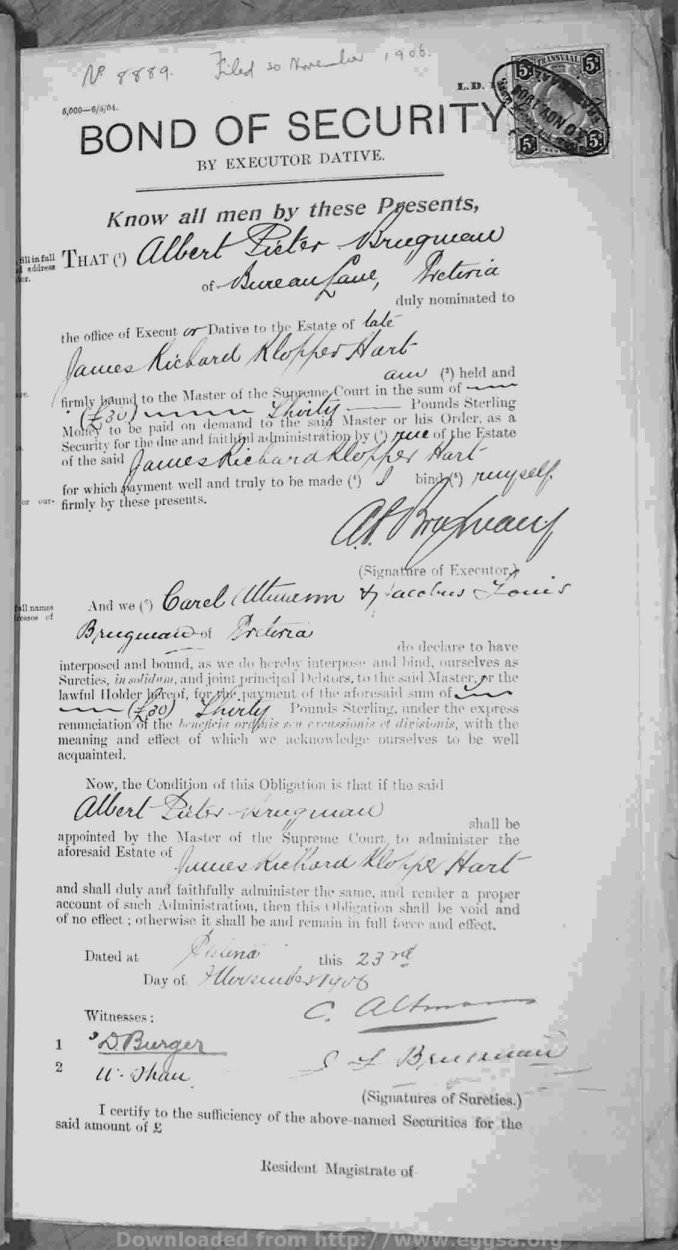 No 8889. Filed 30 November 1906.
L.D.
5,000—6/5/04.
TRANSVAAL
BOND OF SECURITY
BY EXECUTOR DATIVE.
Know all men by these Presents,
THAT (¹) Albert Pieter Brugman
of Bureau Lane, Pretoria
duly nominated to
the office of Execut or Dative to the Estate of late
James Richard Klopper Hart
am (²) held and
firmly bound to the Master of the Supreme Court in the sum of
(£30) Thirty Pounds Sterling
Money to be paid on demand to the said Master or his Order, as a
Security for the due and faithful administration by (³) me of the Estate
of the said James Richard Klopper Hart
for which payment well and truly to be made (⁴) I bind (⁵) myself
firmly by these presents.
(Signature of Executor.)
And we (⁶) Carel Altmann & Jacobus Louis
Brugman of Pretoria
do declare to have
interposed and bound, as we do hereby interpose and bind, ourselves as
Sureties, in solidum, and joint principal Debtors, to the said Master, or the
lawful Holder hereof, for the payment of the aforesaid sum of
(£30) Thirty Pounds Sterling, under the express
renunciation of the beneficia ordinis seu excussionis et divisionis, with the
meaning and effect of which we acknowledge ourselves to be well
acquainted.
Now, the Condition of this Obligation is that if the said
Albert Pieter Brugman
shall be
appointed by the Master of the Supreme Court, to administer the
aforesaid Estate of
James Richard Klopper Hart
and shall duly and faithfully administer the same, and render a proper
account of such Administration, then this Obligation shall be void and
of no effect; otherwise it shall be and remain in full force and effect.
Dated at Pretoria this 23rd
Day of November 1906
Witnesses: C. Altmann
1 D. Burger
2 J L Brugman
(Signatures of Sureties.)
I certify to the sufficiency of the above-named Securities for the
said amount of £
Resident Magistrate of
Downloaded from http://www.eggsa.org